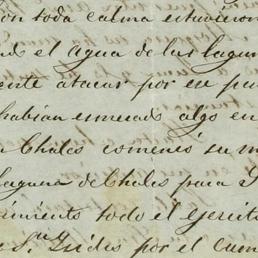 con toda calma estuvieron
el agua de las lagun
ente atacar por su pu
habian esmerado algo en
Chalco comensó su m
laguna de Chalco para
imiento todo el ejercit
por el cam